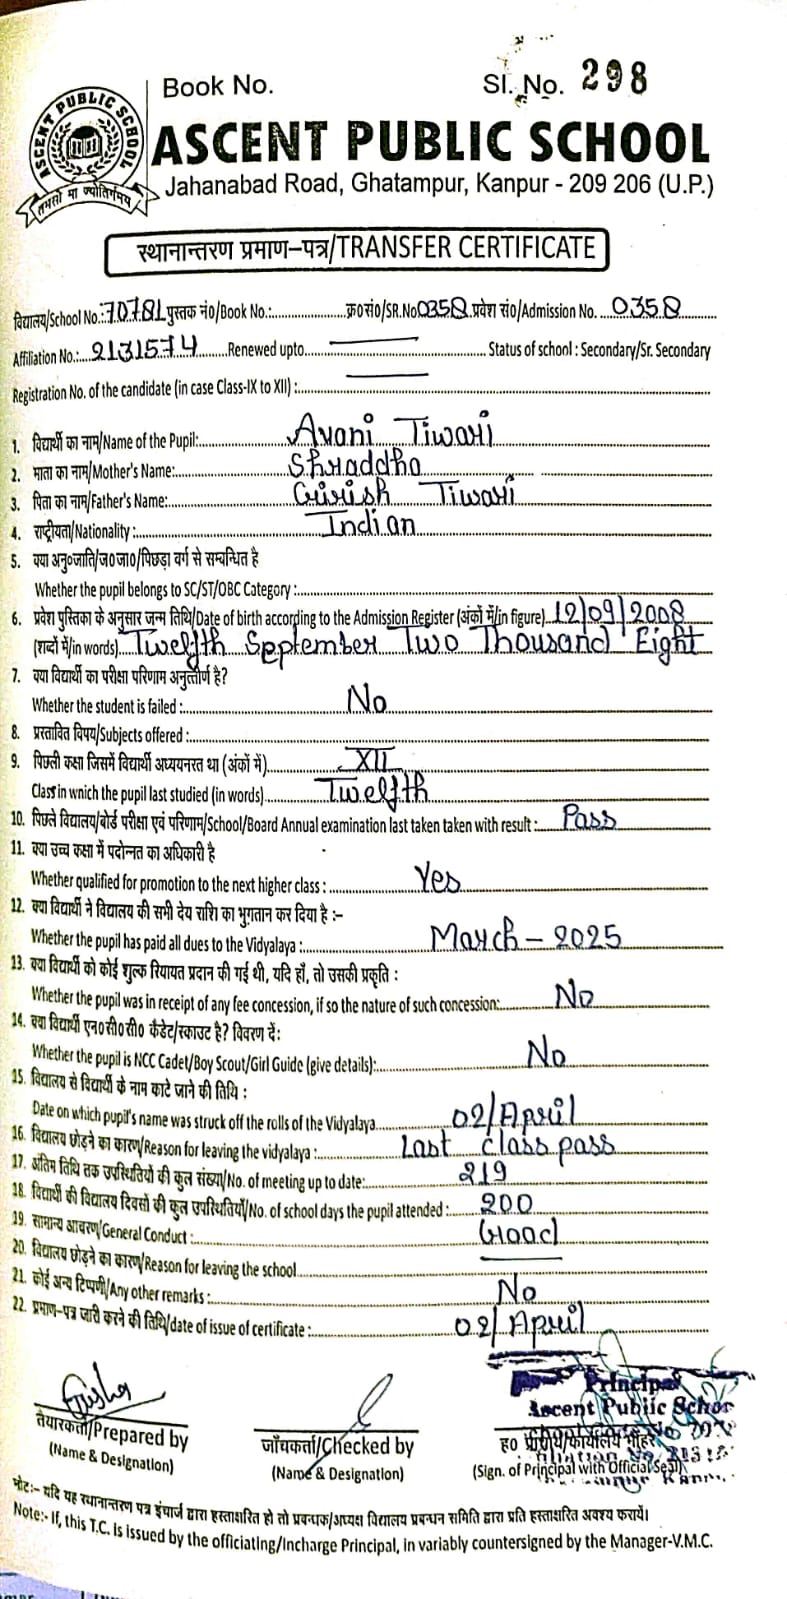 Book No.
Sl. No. 298
ASCENT PUBLIC SCHOOL
तमसो मा ज्योतिर्गमय
ASCENT PUBLIC SCHOOL
Jahanabad Road, Ghatampur, Kanpur - 209 206 (U.P.)
स्थानान्तरण प्रमाण–पत्र/TRANSFER CERTIFICATE
विद्यालय/School No.: 70781 पुस्तक नं०/Book No.:.......... क्र०सं०/SR.No 0358 प्रवेश सं०/Admission No. 0358
Affiliation No.: 2131574 Renewed upto.......... Status of school : Secondary/Sr. Secondary
Registration No. of the candidate (in case Class-IX to XII) :..........
1. विद्यार्थी का नाम/Name of the Pupil: Avani Tiwari
2. माता का नाम/Mother's Name: Shraddha
3. पिता का नाम/Father's Name: Girish Tiwari
4. राष्ट्रीयता/Nationality : Indian
5. क्या अनु०जाति/ज०जा०/पिछड़ा वर्ग से सम्बन्धित है
Whether the pupil belongs to SC/ST/OBC Category :..........
6. प्रवेश पुस्तिका के अनुसार जन्म तिथि/Date of birth according to the Admission Register (अंकों में/in figure) 12/09/2008
(शब्दों में/in words) Twelfth September Two Thousand Eight
7. क्या विद्यार्थी का परीक्षा परिणाम अनुत्तीर्ण है?
Whether the student is failed : No
8. प्रस्तावित विषय/Subjects offered :..........
9. पिछली कक्षा जिसमें विद्यार्थी अध्ययनरत था (अंकों में) XII
Class in wnich the pupil last studied (in words) Twelfth
10. पिछले विद्यालय/बोर्ड परीक्षा एवं परिणाम/School/Board Annual examination last taken taken with result : Pass
11. क्या उच्च कक्षा में पदोन्नत का अधिकारी है
Whether qualified for promotion to the next higher class : Yes
12. क्या विद्यार्थी ने विद्यालय की सभी देय राशि का भुगतान कर दिया है :–
Whether the pupil has paid all dues to the Vidyalaya : March – 2025
13. क्या विद्यार्थी को कोई शुल्क रियायत प्रदान की गई थी, यदि हाँ, तो उसकी प्रकृति :
Whether the pupil was in receipt of any fee concession, if so the nature of such concession: No
14. क्या विद्यार्थी एन०सी०सी० कैडेट/स्काउट है? विवरण दें:
Whether the pupil is NCC Cadet/Boy Scout/Girl Guide (give details): No
15. विद्यालय से विद्यार्थी के नाम काटे जाने की तिथि :
Date on which pupil's name was struck off the rolls of the Vidyalaya 02/April
16. विद्यालय छोड़ने का कारण/Reason for leaving the vidyalaya : Last class pass
17. अंतिम तिथि तक उपस्थितियों की कुल संख्या/No. of meeting up to date: 219
18. विद्यार्थी की विद्यालय दिवसो की कुल उपस्थितियाँ/No. of school days the pupil attended : 200
19. सामान्य आचरण/General Conduct : Good
20. विद्यालय छोड़ने का कारण/Reason for leaving the school..........
21. कोई अन्य टिप्पणी/Any other remarks : No
22. प्रमाण–पत्र जारी करने की तिथि/date of issue of certificate : 02/April
Principal
Ascent Public School
तैयारकर्ता/Prepared by
(Name & Designation)
जाँचकर्ता/Checked by
(Name & Designation)
(Sign. of Principal with Official Seal)
नोट:– यदि यह स्थानान्तरण पत्र इंचार्ज द्वारा हस्ताक्षरित हो तो प्रबन्धक/अध्यक्ष विद्यालय प्रबन्धन समिति द्वारा प्रति हस्ताक्षरित अवश्य करायें।
Note:- If, this T.C. is issued by the officiating/Incharge Principal, in variably countersigned by the Manager-V.M.C.